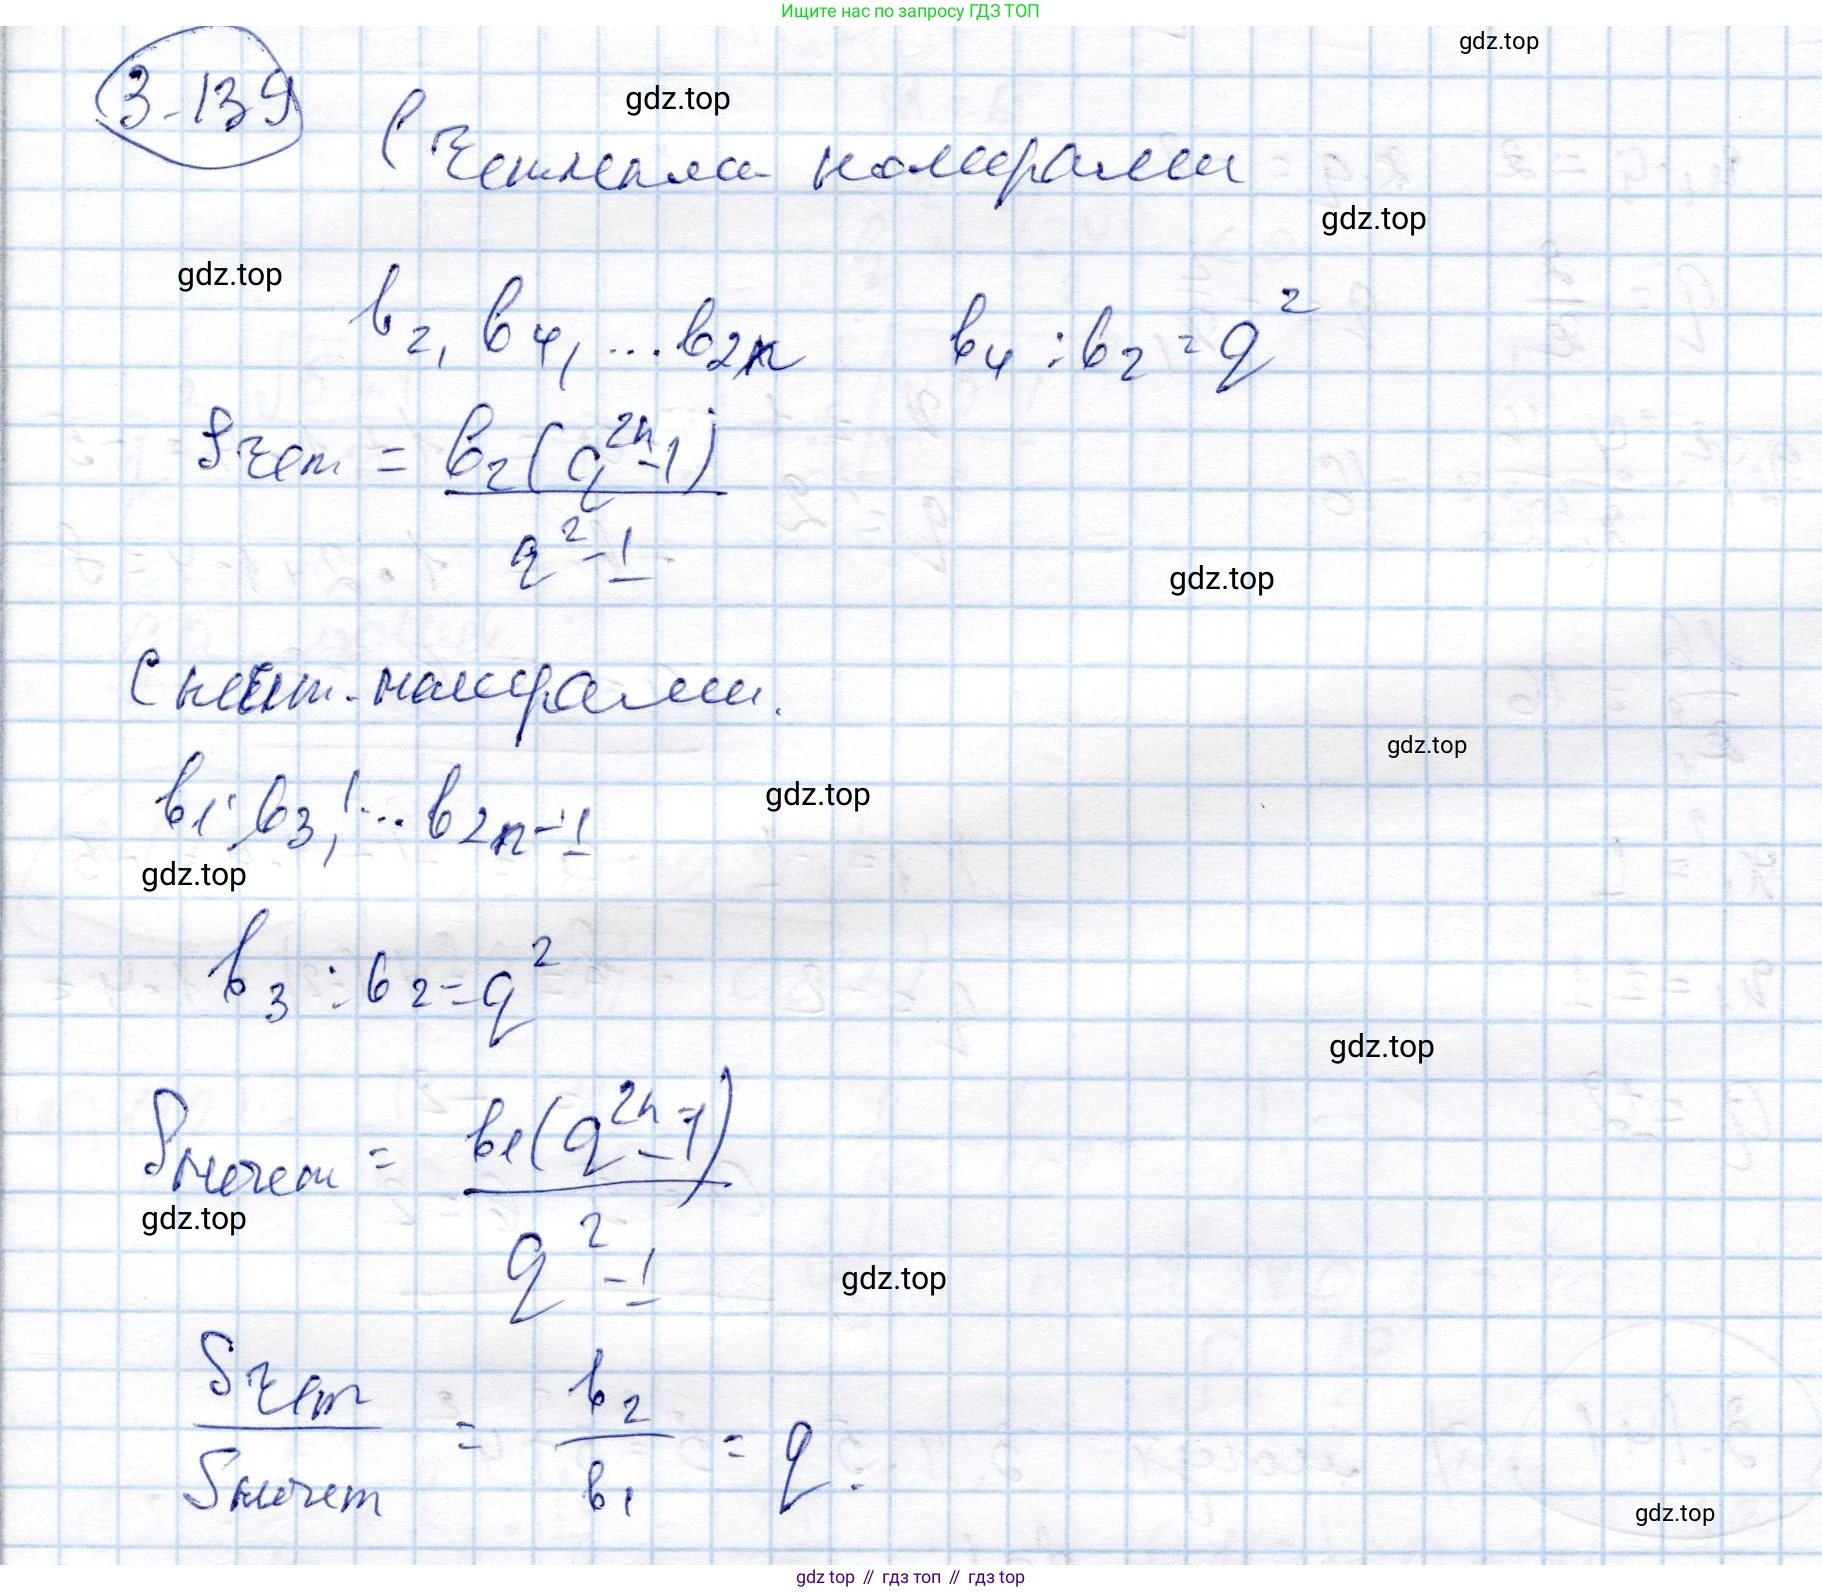 Ищите нас по запросу ГДЗ ТОП
gdz.top
3-139
gdz.top
С четными номерами
gdz.top
gdz.top
b₂, b₄, ... b₂ₙ b₄ : b₂ = q²
Sчет = b₂(q²ⁿ-1) / q²-1
gdz.top
С нечет. номерами.
gdz.top
b₁; b₃, ... b₂ₙ₋₁
gdz.top
gdz.top
b₃ : b₂ = q²
gdz.top
Sнечет = b₁(q²ⁿ-1) / q²-1
gdz.top
gdz.top
Sчет / Sнечет = b₂ / b₁ = q.
gdz.top
gdz top // гдз топ // гдз top